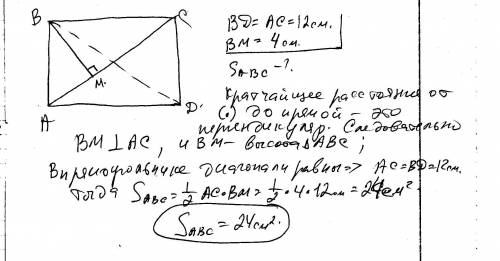 B C
BD = AC = 12см.
BM = 4см.
S ABC - ?
M.
A D.
Кратчайшее расстояние от
(·) до прямой - это
перпендикуляр. Следовательно
BM ⊥ AC, и BM - высота ABC;
В прямоугольнике диагонали равны => AC = BD = 12см.
Тогда S ABC = 1/2 AC · BM = 1/2 · 4 · 12см = 24см².
S ABC = 24см².